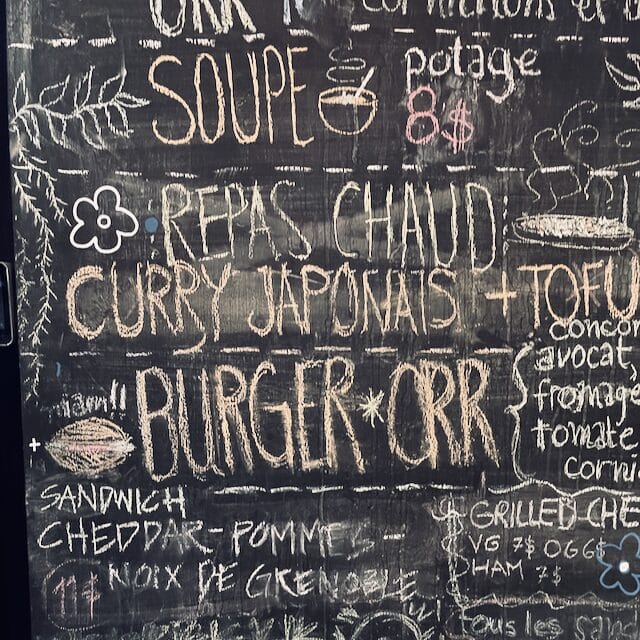 ORR
cornichons et
SOUPE
potage
8$
REPAS CHAUD
CURRY JAPONAIS + TOFU
BURGER*ORR
conco
avocat,
fromage
tomate
corni
miam!!
SANDWICH
CHEDDAR-POMMES-
NOIX DE GRENOBLE
11$
GRILLED CHE
VG 7$ OGG$
HAM 7$
tous les sand